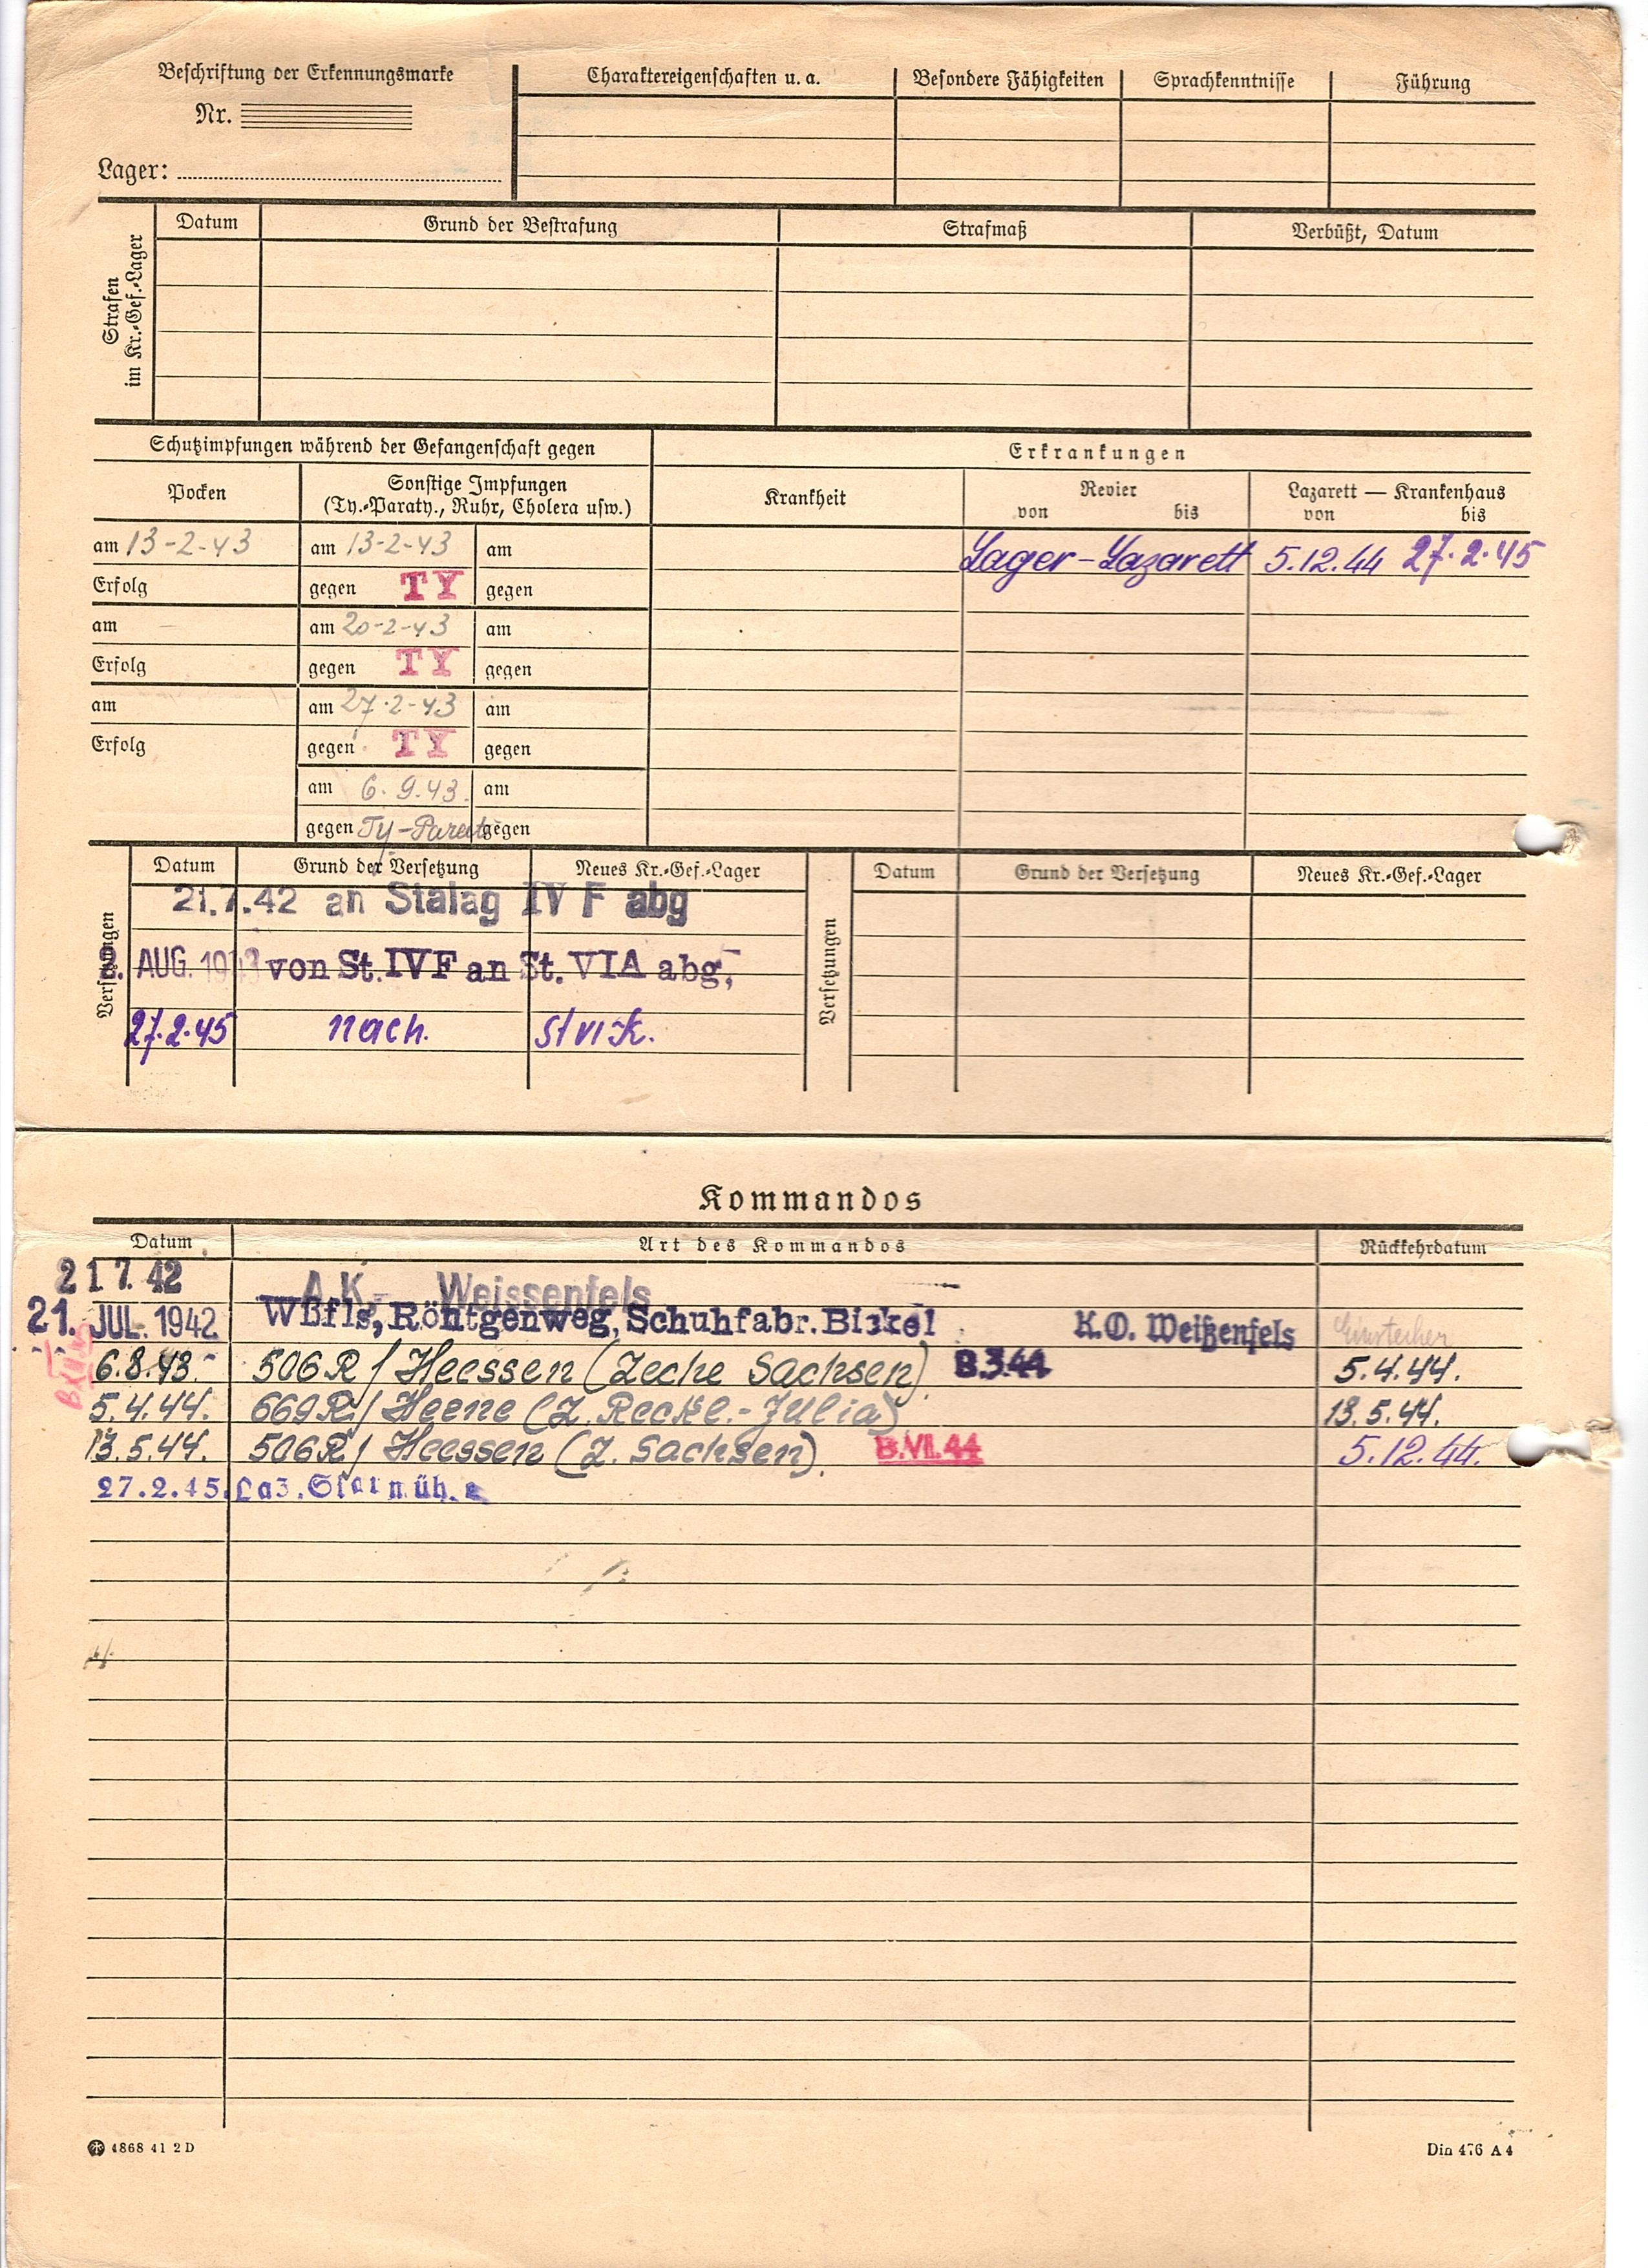 Beschriftung der Erkennungsmarke
Nr.
Lager:
Charaktereigenschaften u. a. Besondere Fähigkeiten Sprachkenntnisse Führung
Strafen im Kr.-Gef.-Lager
Datum Grund der Bestrafung Strafmaß Verbüßt, Datum
Schutzimpfungen während der Gefangenschaft gegen
Erkrankungen
Pocken
Sonstige Impfungen
(Ty.-Paraty., Ruhr, Cholera usw.)
Krankheit
Revier
von bis
Lazarett — Krankenhaus
von bis
am 13-2-43 am 13-2-43 am
Lager-Lazarett 5.12.44 27.2.45
Erfolg gegen TY gegen
am am 20-2-43 am
Erfolg gegen TY gegen
am am 27.2-43 am
Erfolg gegen TY gegen
am 6.9.43. am
gegen gegen
Versetzungen
Datum Grund der Versetzung Neues Kr.-Gef.-Lager
21.7.42 an Stalag IV F abg
2. AUG. 1943 von St. IVF an St. VIA abg.
27.2.45 nach.
Versetzungen
Datum Grund der Versetzung Neues Kr.-Gef.-Lager
Kommandos
Datum Art des Kommandos Rückkehrdatum
21 7. 42 A.K. Weissenfels
21. JUL. 1942 Wßfls, Röntgenweg, Schuhfabr. K.O. Weißenfels
6.8.43. 506 R / Heessen (Zeche Sachsen) B.3.44 5.4.44.
5.4.44. 669 R / Heene (Z. Reckl.-Julia) 13.5.44.
13.5.44. 506 R / Heessen (Z. Sachsen). B.VII.44 5.12.44.
27.2.45. Laz.
4868 41 2 D
Din 476 A 4